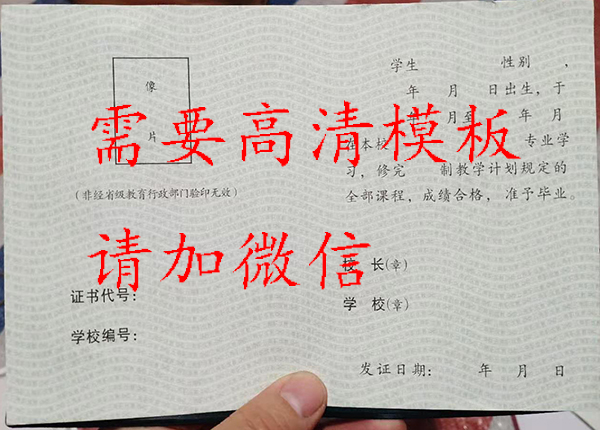 像
片
(非经省级教育行政部门验印无效)
证书代号:
学校编号:
学生 性别 ,
年 月 日出生,于
年 月至 年 月
在本校 专业学
习,修完 制教学计划规定的
全部课程,成绩合格,准予毕业。
校 长(章)
学 校(章)
发证日期: 年 月 日
需要高清模板
请加微信